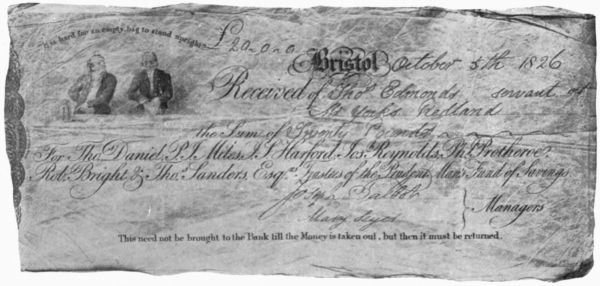 It is hard for an empty bag to stand upright
£20-0-0
Bristol October 5th 1826
Received of Thos Edmonds servant at
Mr Yorks Redland
the Sum of Twenty Pounds
For Tho. Daniel, P. J. Miles, J. S. Harford, Jos. Reynolds, Ph. Protheroe,
Robt. Bright & Tho. Sanders, Esqrs. Trustees of the Prudent Mans Fund of Savings.
Joseph Talbot
Mary
Managers
This need not be brought to the Bank till the Money is taken out, but then it must be returned.